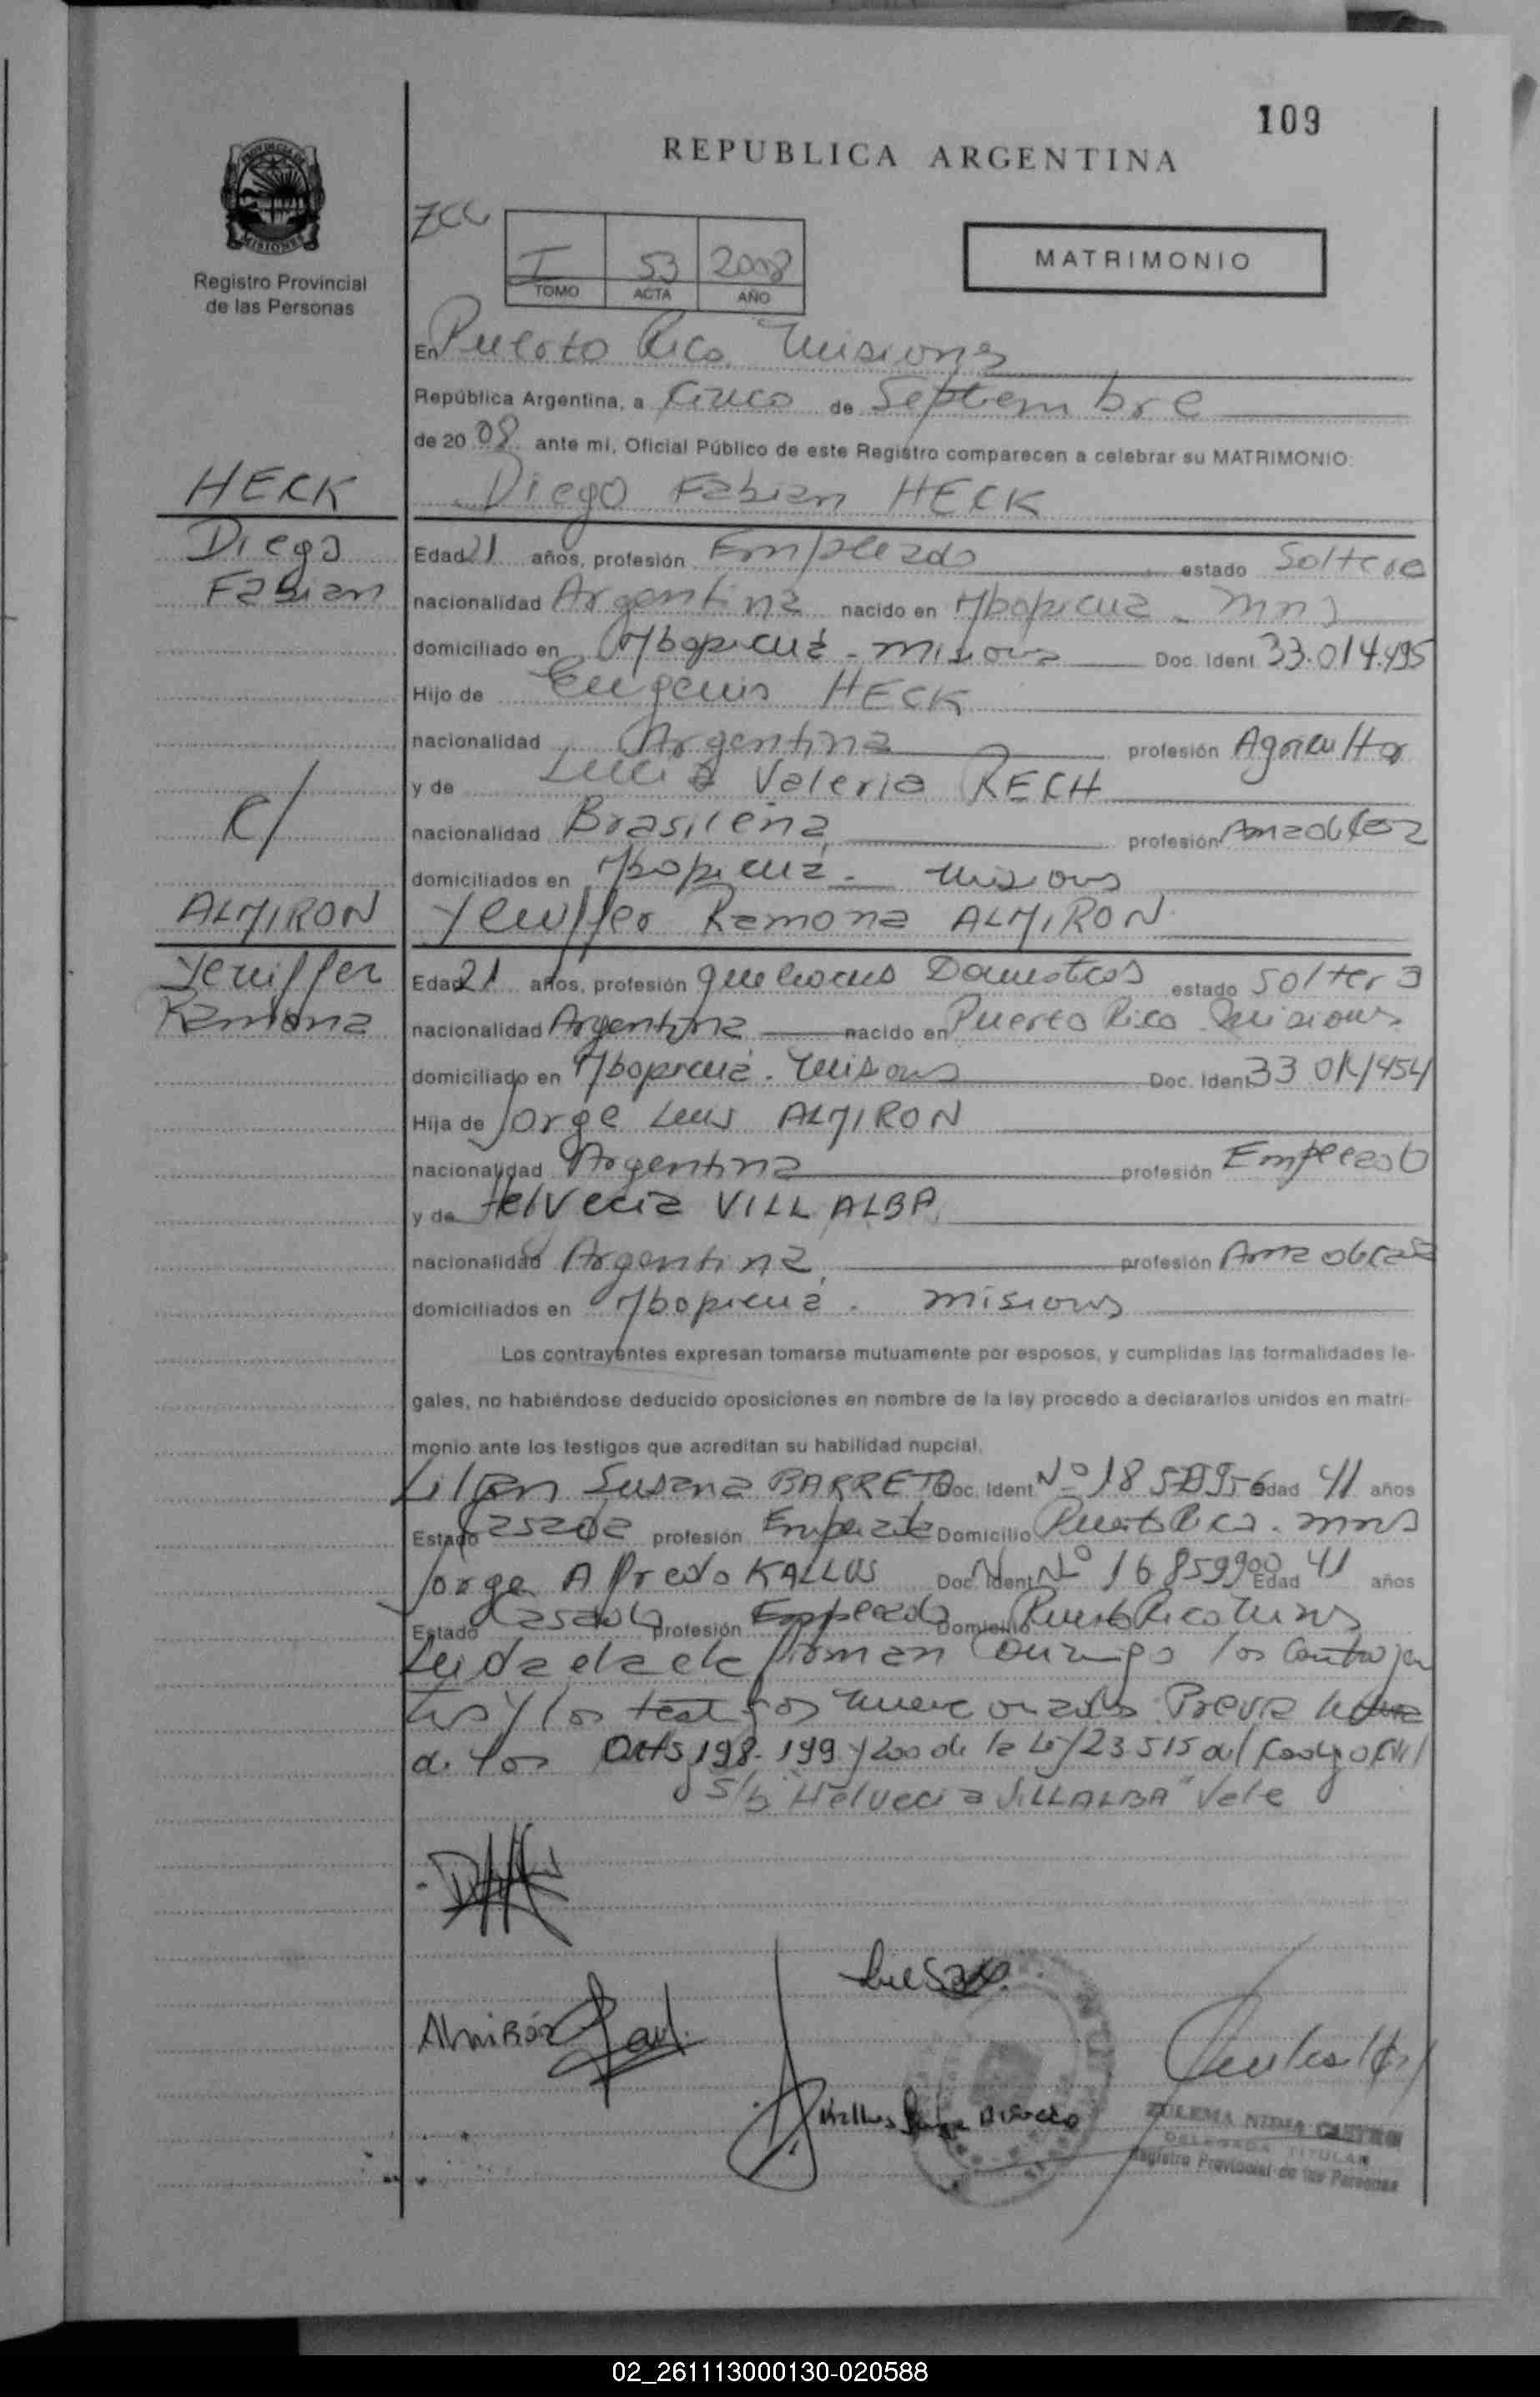 109
REPUBLICA ARGENTINA
PROVINCIA DE
MISIONES
Registro Provincial
de las Personas
I 53 2008
TOMO ACTA AÑO
MATRIMONIO
En Puerto Rico Misiones
República Argentina, a Cinco de Septiembre
de 20 08 ante mi, Oficial Público de este Registro comparecen a celebrar su MATRIMONIO:
HECK
Diego
Fabian
c/
ALMIRON
Yeniffer
Ramona
Diego Fabian HECK
Edad 21 años, profesión Empleado estado Soltero
nacionalidad Argentina nacido en Mbopicua - Mns
domiciliado en Mbopicuá - Misiones Doc. Ident 33.014.495
Hijo de Eugenio HECK
nacionalidad Argentina profesión Agricultor
y de Lucia Valeria RECH
nacionalidad Brasileña profesión Ama de Casa
domiciliados en Mbopicuá - Misiones
Yeniffer Ramona ALMIRON
Edad 21 años, profesión quehaceres Domesticos estado Soltera
nacionalidad Argentina nacido en Puerto Rico Misiones
domiciliado en Mbopicuá - Misiones Doc. Ident 33 014454
Hija de Jorge Luis ALMIRON
nacionalidad Argentina profesión Empleado
y de Helvecia VILLALBA
nacionalidad Argentina profesión Ama de Casa
domiciliados en Mbopicuá - Misiones
Los contrayentes expresan tomarse mutuamente por esposos, y cumplidas las formalidades le-
gales, no habiéndose deducido oposiciones en nombre de la ley procedo a declararlos unidos en matri-
monio ante los testigos que acreditan su habilidad nupcial.
Lilian Susana BARRETO Doc. Ident Nº 18 Edad 41 años
Estado Casada profesión Empleada Domicilio Puerto Rico - Mns
Jorge Alfredo KALLUS Doc. Ident Nº 16 859900 Edad 41 años
Estado Casado profesión Empleado Domicilio Puerto Rico Mns
Leida el acta firman Conmigo los Contrayen
tes y los testigos mencionados Previa lectura
de los Arts 198- 199 y 200 de la Ley 23.515 del Codigo Civil
S/b "Helvecia VILLALBA" Vale
Almirón
Kallus Jorge Alfredo
ZULEMA NIDIA CASTRO
DELEGADA TITULAR
Registro Provincial de las Personas
02_261113000130-020588